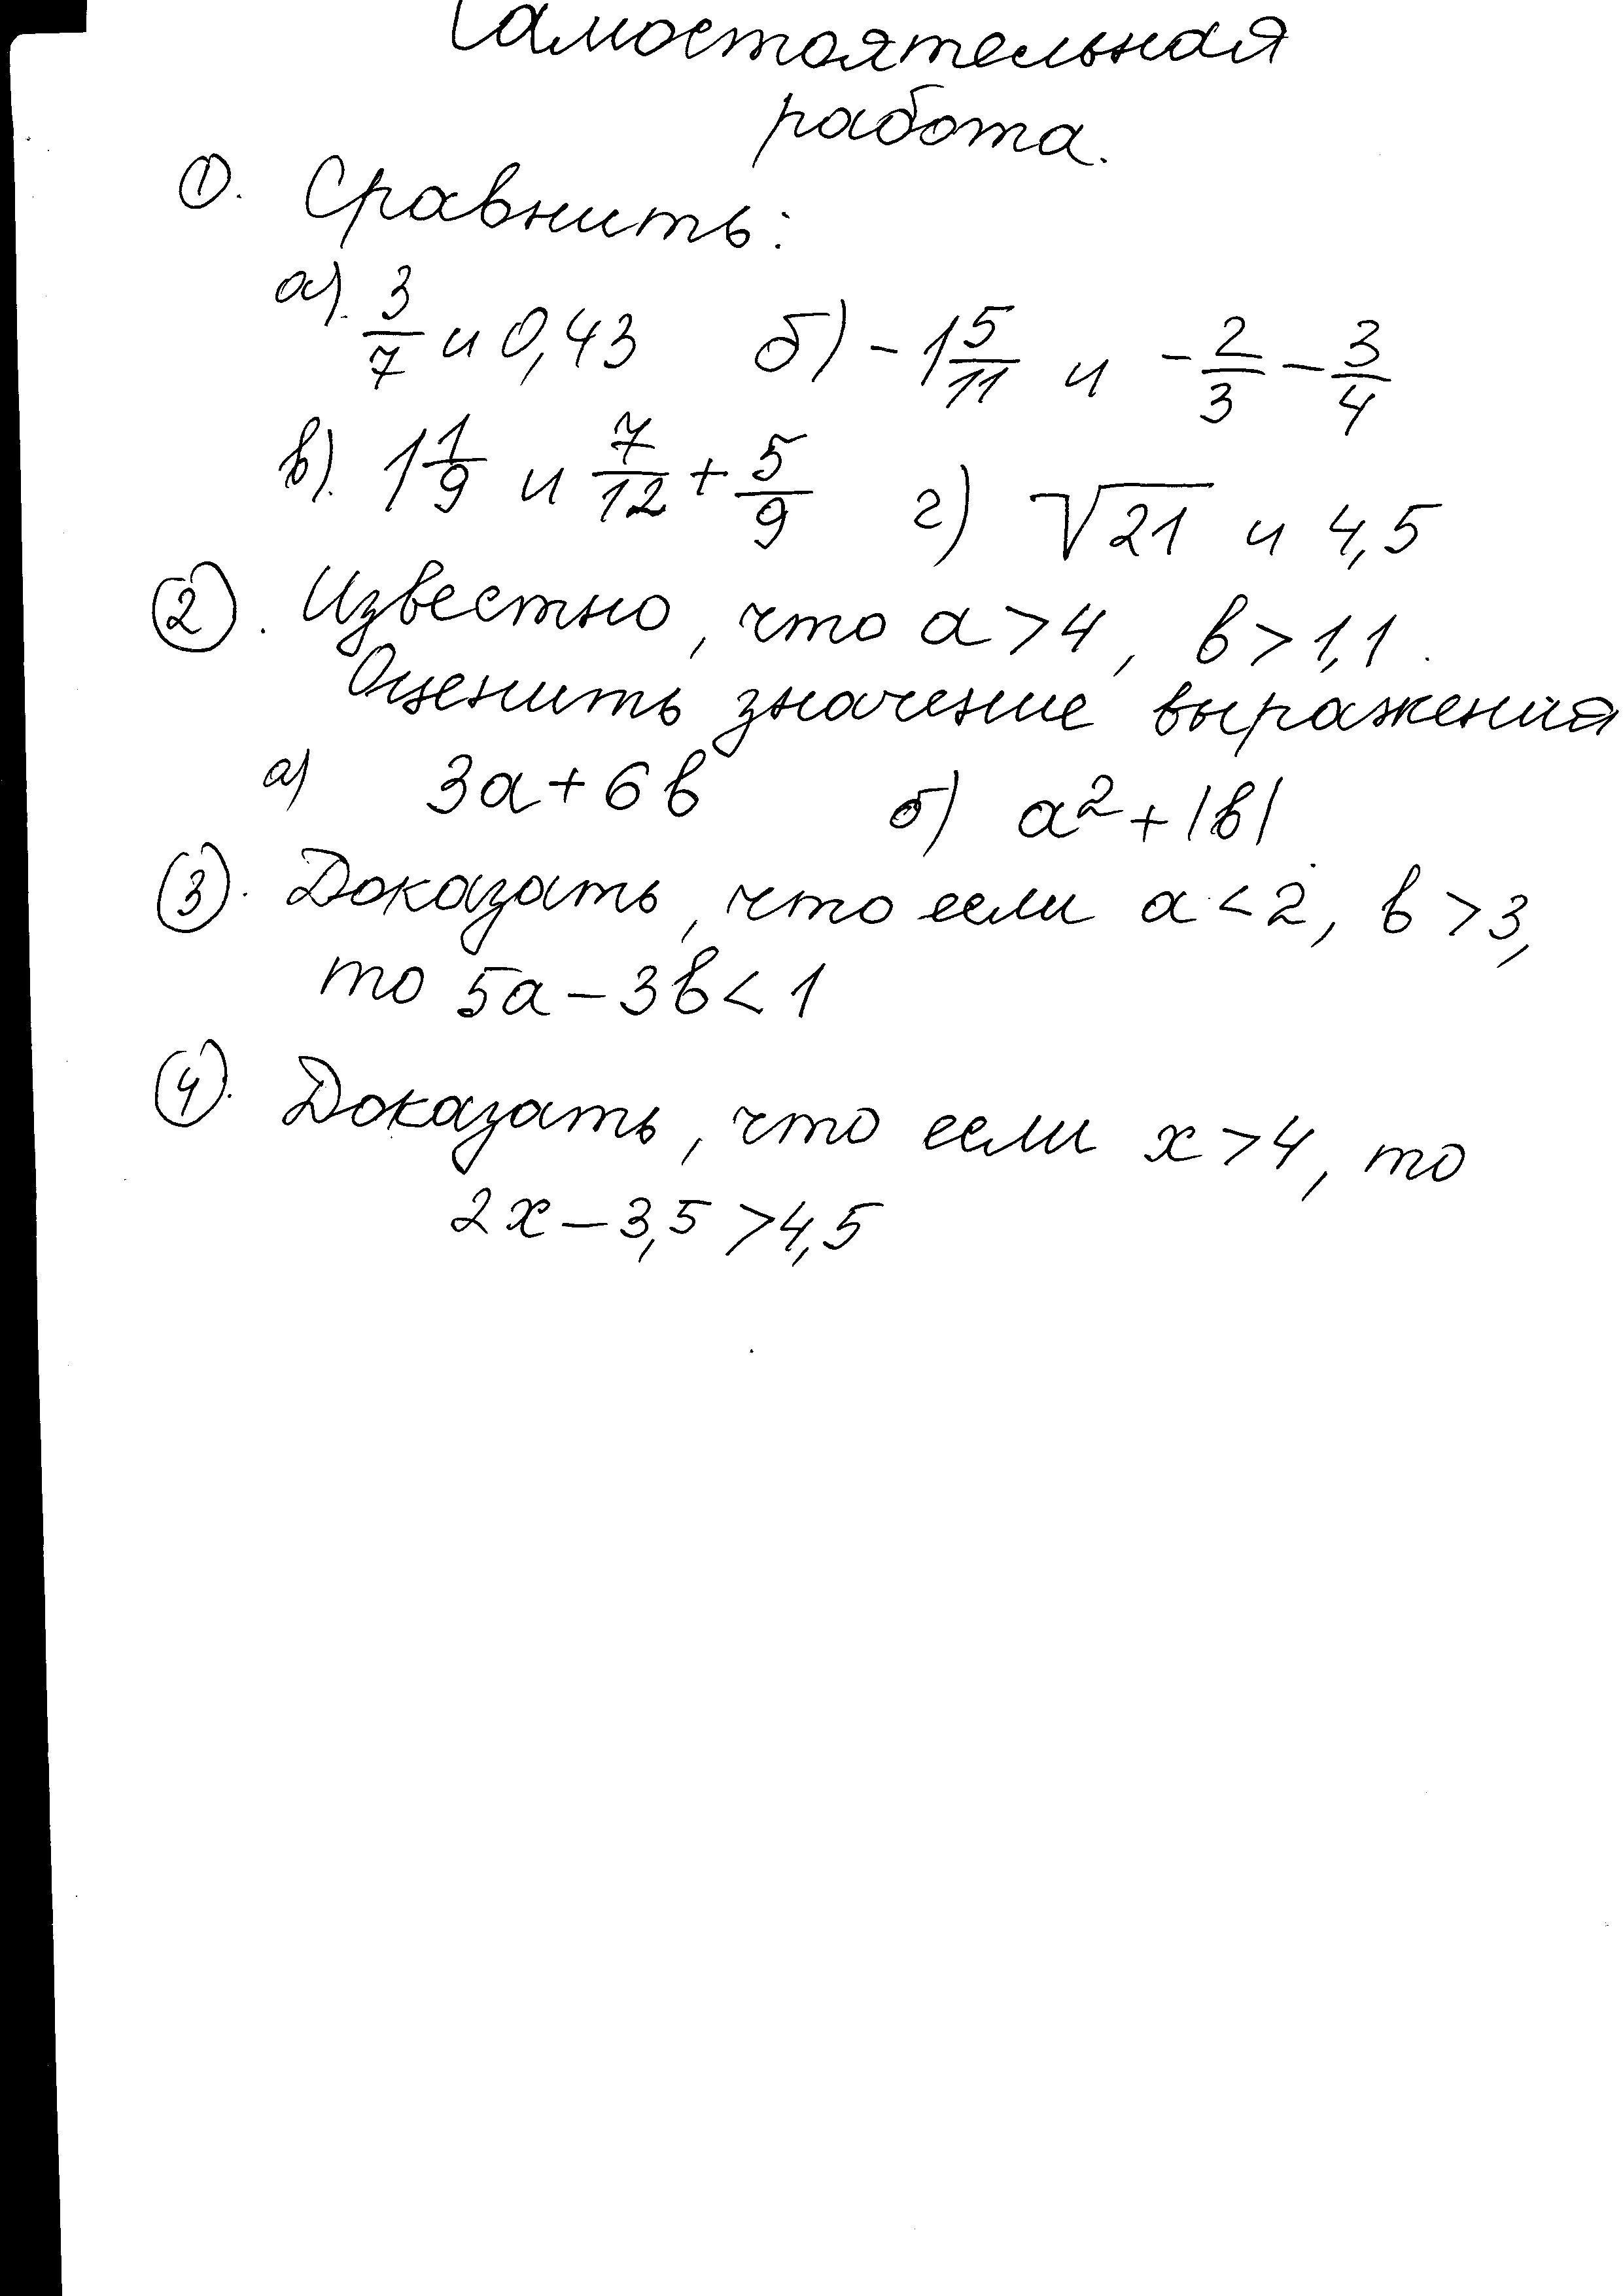 Самостоятельная
работа.
①. Сравнить:
а). 3/7 и 0,43 б) -1 5/11 и -2/3 - 3/4
в). 1 1/9 и 7/12 + 5/9 г) √21 и 4,5
②. Известно, что а > 4, в > 1,1.
Оценить значение выражения
а) 3а + 6в б) а² + |в|
③. Доказать, что если а < 2, в > 3,
то 5а - 3в < 1
④. Доказать, что если х > 4, то
2х - 3,5 > 4,5